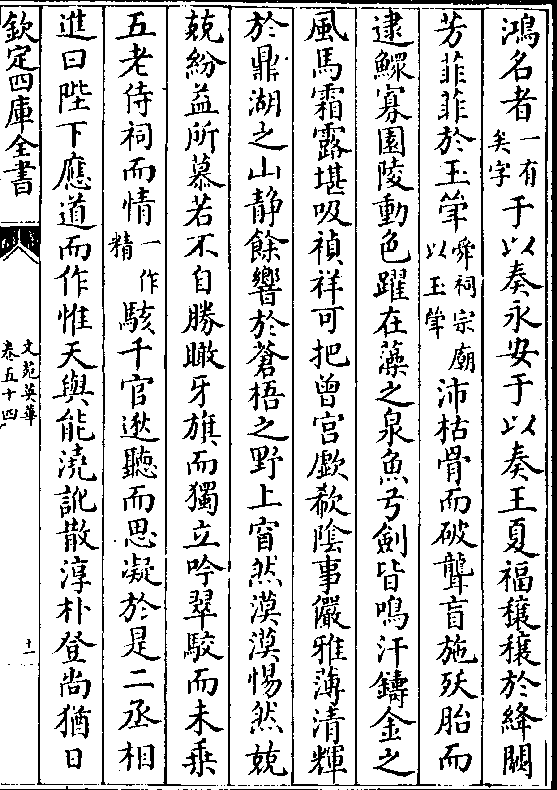 鴻名者一有矣字于以奏永安于以奏王夏福穰穰於絳闕
芳菲菲於玉筆舜祠宗廟以玉筆沛枯骨而破聾盲施殀胎而
逮鰥寡園陵動色躍在藻之泉魚弓劍皆鳴汗鑄金之
風馬霜露堪吸禎祥可把曾宮歔欷陰事儼雅薄清輝
於鼎湖之山靜餘響於蒼梧之野上窅然漠漠惕然兢
兢紛益所慕若不自勝瞰牙旗而獨立吟翠駮而未乗
五老侍祠而情一作精駭千官逖聽而思凝於是二丞相
進曰陛下應道而作惟天與能澆訛散淳朴登尚猶日
欽定四庫全書
文苑英華
卷五十四
十一